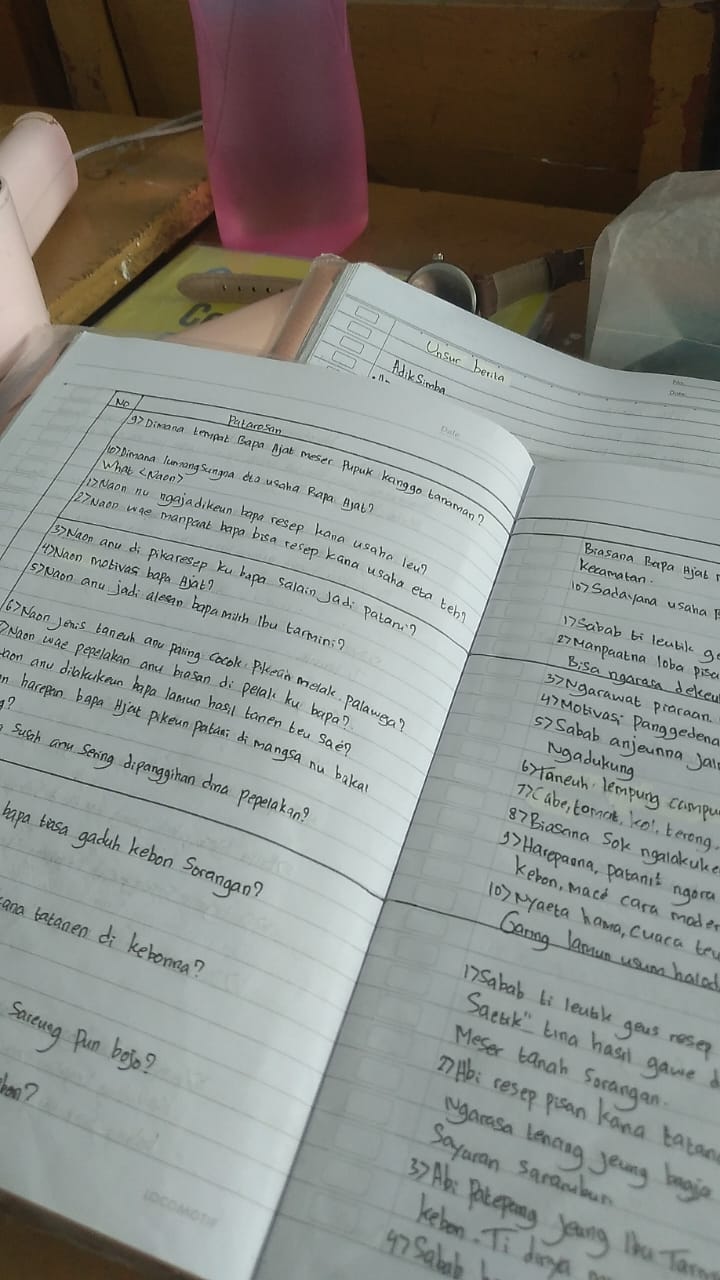 Unsur berita
No.
Date:
Adik Simba
No
Patarosan
Date
9) Dimana tempat Bapa Ajat meser Pupuk kanggo tanaman?
10) Dimana lumangsungna eta usaha Bapa Ajat?
What <Naon>
1) Naon nu ngajadikeun bapa resep kana usaha ieu?
2) Naon wae manpaat bapa bisa resep kana usaha eta teh?
3) Naon anu di pikaresep ku bapa salain jadi patani?
4) Naon motivasi bapa Ajat?
5) Naon anu jadi alesan bapa milih Ibu tarmini?
6) Naon jenis taneuh anu paling cocok pikeun melak palawga?
Naon wae pepelakan anu biasan di pelak ku bapa?
anu dilakukeun bapa lamun hasil tanen teu sae?
harepan bapa Ajat pikeun patani di mangsa nu bakal
?
susah anu sering dipanggihan dina pepelakan?
bapa tiasa gaduh kebon Sorangan?
tatanen di kebonna?
Sareung Pun bojo?
LOCOMOTIF
Biasana Bapa Ajat
Kecamatan.
10) Sadayana usaha
1) Sabab ti leutik
2) Manpaatna loba
Bisa ngarasa
3) Ngarawat piaraan.
4) Motivasi Panggedena
5) Sabab anjeunna
Ngadukung
6) Taneuh lempung
7) Cabe, tomat, kol, terong,
8) Biasana Sok
9) Harepanna, patani² ngora
kebon, make cara
10) Nyaeta hama, cuaca
Garing lamun usum
1) Sabab ti leutik geus resep
Saetik" tina hasil gawe
Meser tanah Sorangan.
2) Abi resep pisan kana
Ngarasa tenang jeung bagja
Sayuran sararubur
3) Abi Patepang jeung Ibu
kebon. Ti dinya
4) Sabab